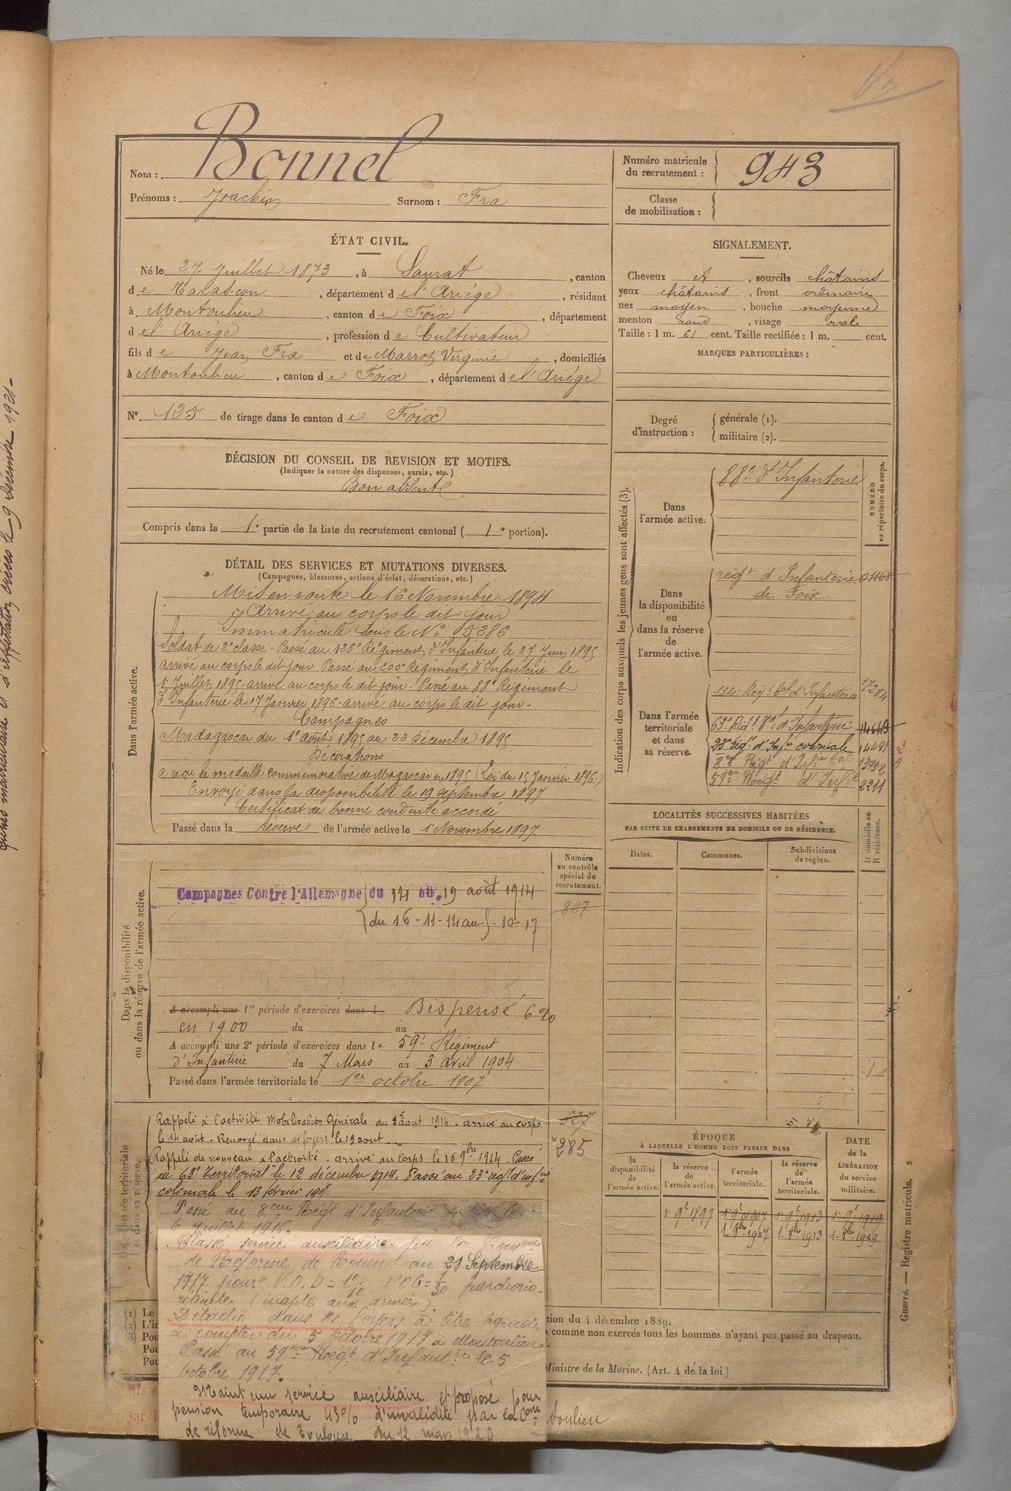 Nom : Bonnel
Prénoms : Joachim Surnom : Fra
Numéro matricule du recrutement : 943
Classe de mobilisation :
ÉTAT CIVIL.
Né le 27 Juillet 1873, à Saurat, canton
de Tarascon, département de l'Ariège, résidant
à Montoulieu, canton de Foix, département
de l'Ariège, profession de Cultivateur
fils de Jean Fra et de Marrot Virginie, domiciliés
à Montoulieu, canton de Foix, département de l'Ariège
N° 125 de tirage dans le canton de Foix
SIGNALEMENT.
Cheveux d, sourcils châtains
yeux châtains, front ordinaire
nez moyen, bouche moyenne
menton rond, visage ovale
Taille : 1 m. 61 cent. Taille rectifiée : 1 m. cent.
MARQUES PARTICULIÈRES :
Degré d'instruction : générale (1).
militaire (2).
DÉCISION DU CONSEIL DE REVISION ET MOTIFS.
(Indiquer la nature des dispenses, sursis, etc.)
Bon
Compris dans la 1e partie de la liste du recrutement cantonal (1e portion).
DÉTAIL DES SERVICES ET MUTATIONS DIVERSES.
(Campagnes, blessures, actions d'éclat, décorations, etc.)
Dans l'armée active.
Mis en route le 16 Novembre 1894
Arrivé au corps le dit jour
Immatriculé sous le N° 15286
Soldat de 2e classe. Passé au 136e Régiment d'Infanterie le 27 Juin 1895
arrivé au corps le dit jour. Passé au 200e Régiment d'Infanterie le
1 Juillet 1895 arrivé au corps le dit jour. Passé au 88e Régiment
d'Infanterie le 17 Janvier 1896 arrivé au corps le dit jour.
Campagnes
Madagascar du 1er août 1895 au 23 Décembre 1895
Décorations
a reçu la médaille commémorative de Madagascar 1895 (Loi du 15 Janvier 1896)
Envoyé dans la disponibilité le 19 septembre 1897
Certificat de bonne conduite accordé
Passé dans la réserve de l'armée active le 1 Novembre 1897
Indication des corps auxquels les jeunes gens sont affectés (3).
NUMÉRO au répertoire du corps.
Dans l'armée active.
88e d'Infanterie
Dans la disponibilité ou dans la réserve de l'armée active.
régt d'Infanterie
de Foix
Dans l'armée territoriale et dans sa réserve.
23e rég. d'Infie coloniale
8me Régt d'Infie
59me Régt d'Infie 2211
LOCALITÉS SUCCESSIVES HABITÉES
PAR SUITE DE CHANGEMENTS DE DOMICILE OU DE RÉSIDENCE.
Dates. Communes. Subdivisions de région. D domicile ou R résidence.
Dans la disponibilité ou dans la réserve de l'armée active.
Numéro au contrôle spécial du recrutement.
887
Campagnes Contre l'Allemagne du 14 au 19 août 1914
du 16-11-14 au 5-10-17
A accompli une 1re période d'exercices dans l Dispensé 620
en 1900 du au
A accompli une 2e période d'exercices dans le 59e Régiment
d'Infanterie du 7 Mars au 3 avril 1904
Passé dans l'armée territoriale le 1er octobre 1907
627
285
Rappelé à l'activité Mobilisation Générale du 2 août 1914. arrivé au corps
le 14 août. Renvoyé dans ses foyers le 19 août.
Rappelé de nouveau à l'activité. arrivé au corps le 16 9bre 1914. Passé
au 63e Territorial le 12 décembre 1914. Passé au 23e régt d'infie
coloniale le 13 février
Passé au 8eme Régt d'Infanterie
6 Juillet 1916.
Classé service auxiliaire par la
de Réforme de Rouen au 21 Septembre
1917 pour
rétinite (inapte aux armées)
Détaché dans ses foyers à titre agricole
à compter du 5 octobre 1917 à Montoulieu.
Passé au 59eme Régt d'Infantie le 5
Octobre 1917.
Maintenu service auxiliaire et proposé pour
pension temporaire 45% d'invalidité par la Com
de réforme de Toulouse du 12 mars 1920
ÉPOQUE
À LAQUELLE L'HOMME DOIT PASSER DANS
la disponibilité de l'armée active. la réserve de l'armée active. l'armée territoriale. la réserve de l'armée territoriale.
DATE de la LIBÉRATION du service militaire.
1 9e 1897 1 9e 1907 1 9e 1913 1 9e 1919
1 8bre 1907 1 8bre 1913 1 8bre 1919
tion du 4 décembre 1889.
comme non exercés tous les hommes n'ayant pas passé au drapeau.
Ministre de la Marine. (Art. 4 de la loi.)
Guerre. — Registre matricule. 2